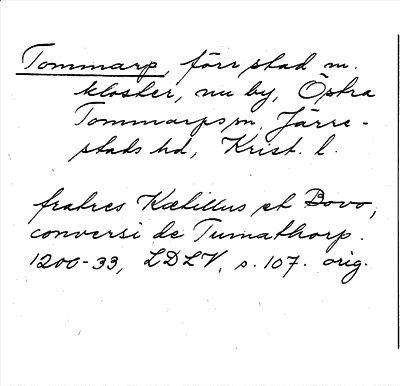 Tommarp, förr stad m.
kloster, nu by, Östra
Tommarps sn, Järre-
stads hd, Krist. l.
fratres Kætillus et Bovo,
conversi de Tumathorp.
1200-33, LDLV, s. 107. orig.